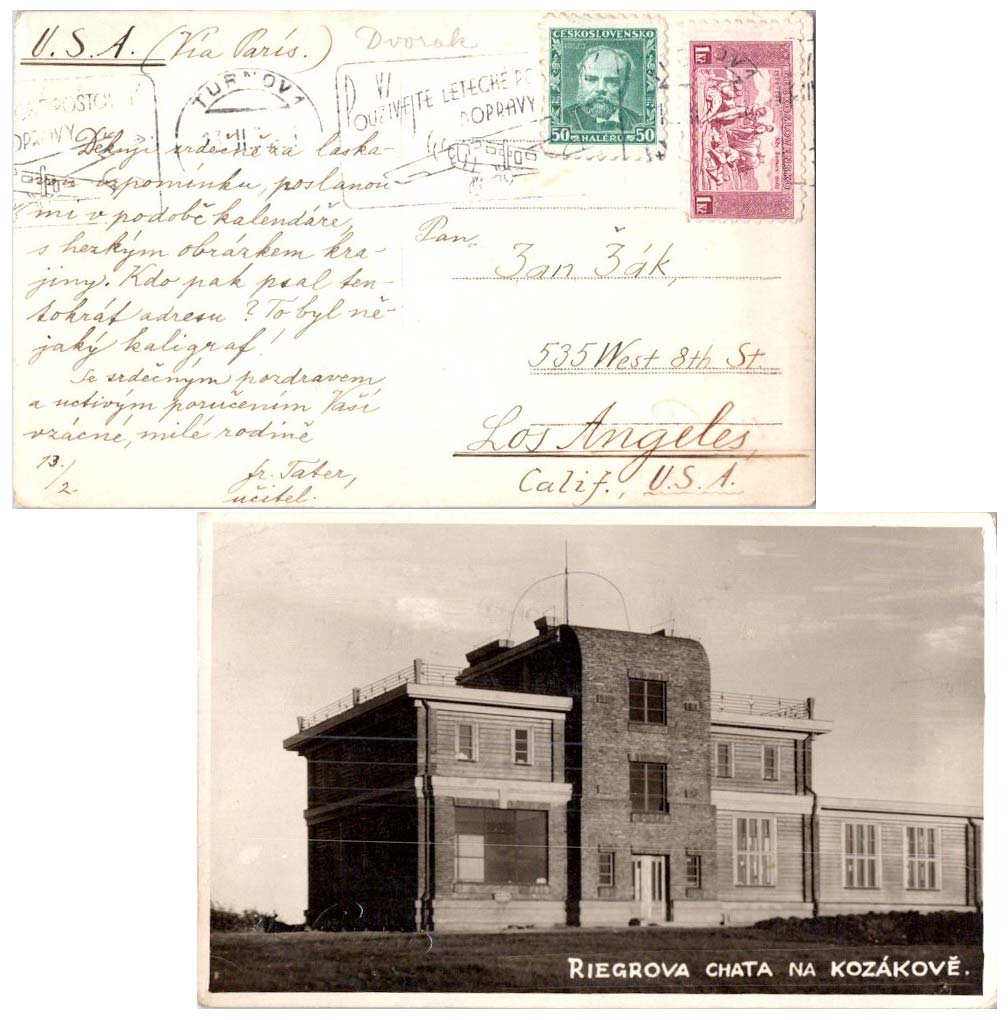 U.S.A. (Via Paris.)
Dvorak
ČESKOSLOVENSKO
50 HALÉŘŮ 50
1 Kč
1 Kč
TURNOV 1
POUŽÍVEJTE LETECKÉ
DOPRAVY
Děkuji srdečně za laska-
vzpomínku, poslanou
mi v podobě kalendáře,
s hezkým obrázkem kra-
jiny. Kdo pak psal ten-
tokrát adresu? To byl ně-
jaký kaligraf!
Se srdečným pozdravem
a uctivým poručením Vaší
vzácné, milé rodině
13./2.
fr. Tater,
učitel.
Pan
Žan Žák,
535 West 8th St.
Los Angeles,
Calif., U.S.A.
RIEGROVA CHATA NA KOZÁKOVĚ.